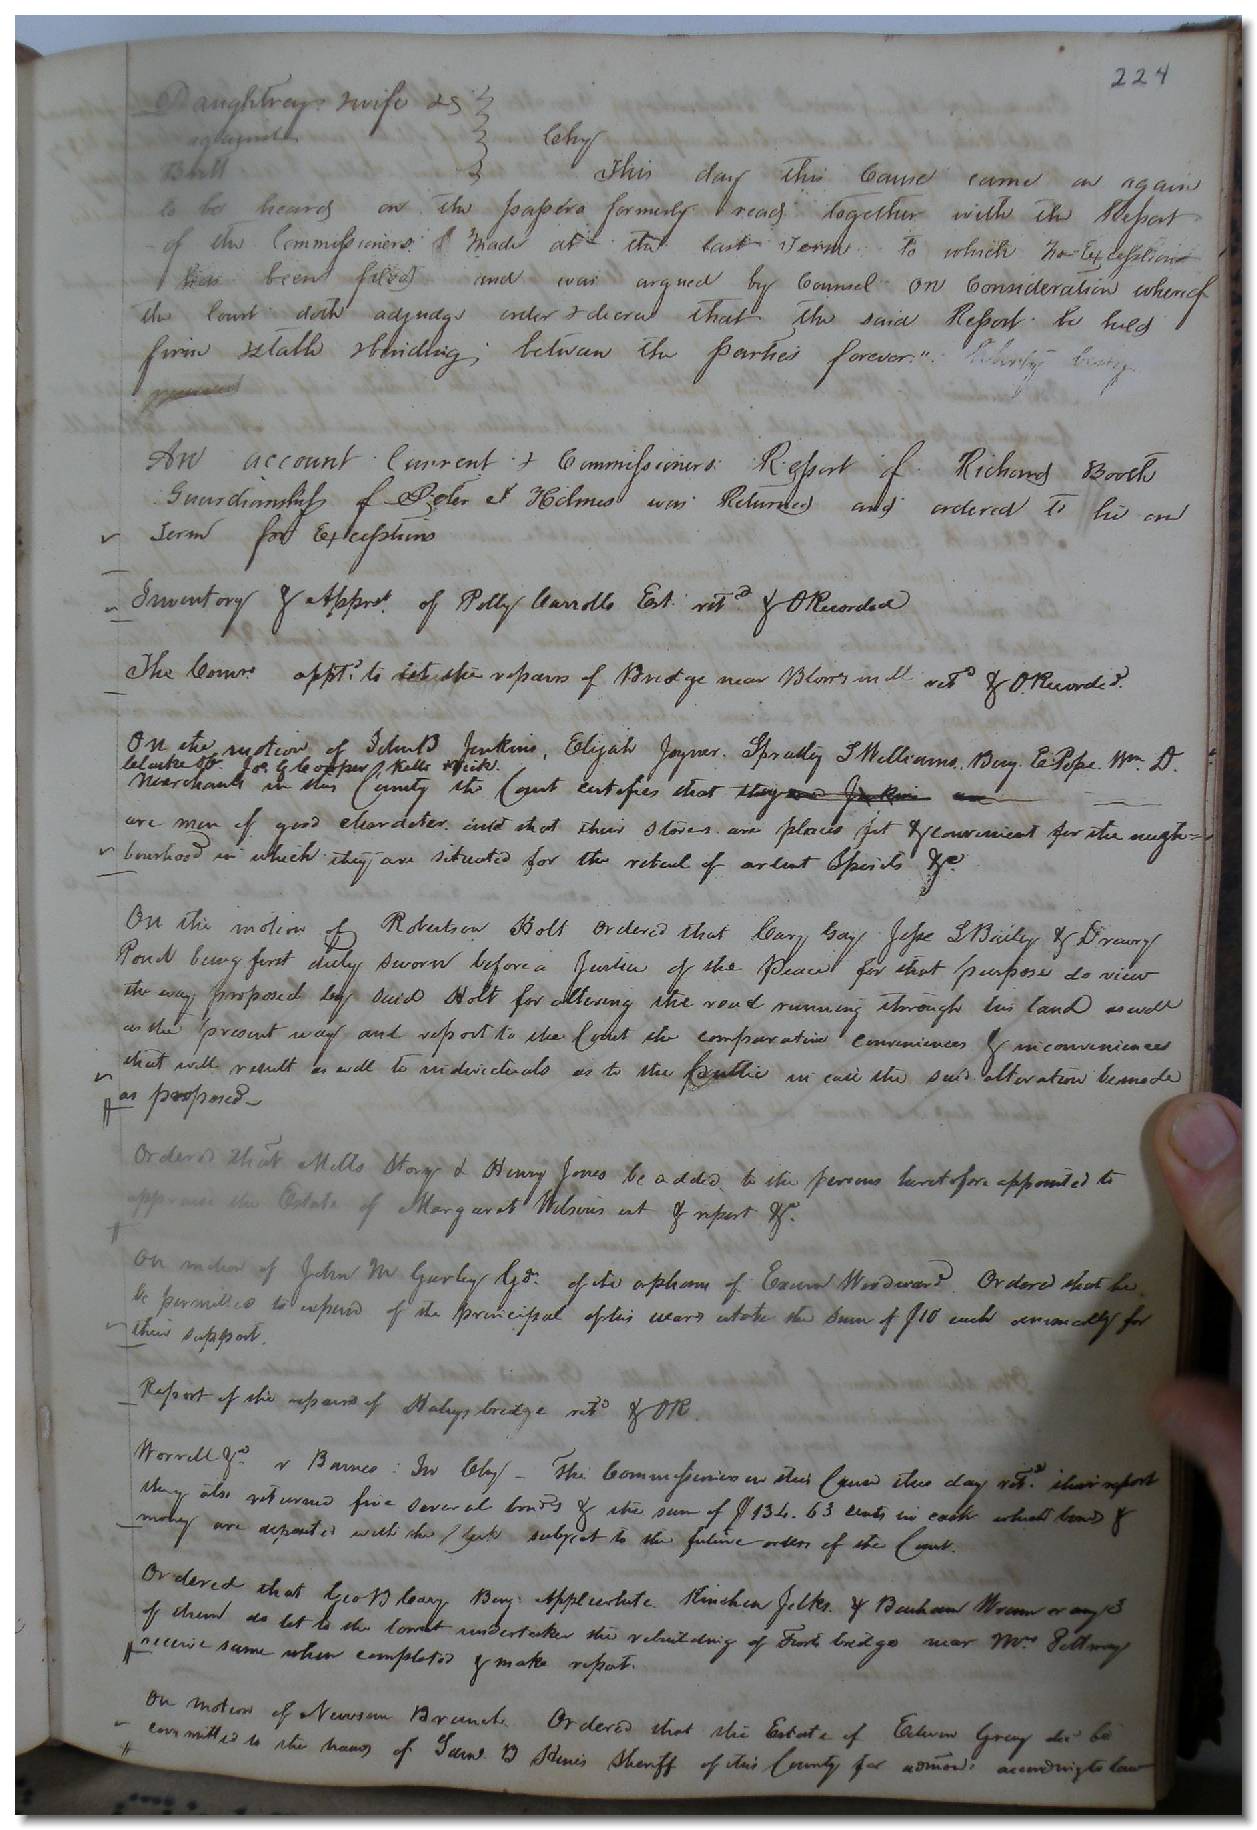 224
Daughtrey & wife &c
against
Britt
Chy
This day this Cause came on again
to be heard on the papers formerly read together with the Report
of the Commissioners made at the last Term to which no Exceptions
has been filed and was argued by Counsel on Consideration whereof
the Court doth adjudge order & decree that the said Report be held
firm & stable & binding between the parties forever
An account Current & Commissioners Report of Richard Booth
Guardianship of Peter J Holmes was Returned and ordered to lie one
Term for Exceptions
Inventory & Appret. of Polly Carrolls Est. retd & ORecorded
The Comrs. apptd. to let the repairs of Bridge near Blows mill retd & O.Recorded.
On the motion of John B Jenkins, Elijah Joyner, Spratley S Williams, Benj. E Pope Wm. D.
Jos. G Cooper
Merchants in this County the Court certifies that they
are men of good character and that their stores are places fit & convenient for the neigh=
bourhood in which they are situated for the retail of ardent Spirits &c.
On the motion of Robertson Holt Ordered that Cary Gay Jesse S Bailey & Drewry
Pond being first duly sworn before a Justice of the Peace for that purpose do view
the way proposed by said Holt for altering the road running through his land as well
as the present way and report to the Court the comparative conveniences & inconveniences
that will result as well to individuals as to the public in case the said alteration be made
as proposed
Ordered that Mills Story & Henry Jones be added to the persons heretofore appointed to
appraise the Estate of Margaret Wilsons est & report &c.
On motion of John M Gurley Gdn. of the orphans of Exum Woodward. Ordered that he
be permitted to expend of the principal of his wards estate the sum of $10 each annually for
their support.
Report of the repairs of Haleys bridge retd & OR.
Worrell &c. v Barnes: In Chy - The Commissioners in this Cause this day retd. their report
they also returned five several bonds & the sum of $134.63 cents in cash which bonds &
money are deposited with the Clerk subject to the future orders of the Court.
Ordered that Geo B Cary Benj. Applewhite Kinchen Jelks & Barham Wrenn or any 3
of them do let to the lowest undertaker the rebuilding of bridge near Mrs. Pettway
receive same when completed & make report.
On motion of Newsom Branch Ordered that the Estate of Edwin Gray dec be
committed to the hands of B Sheriff of this County for admon. according to law